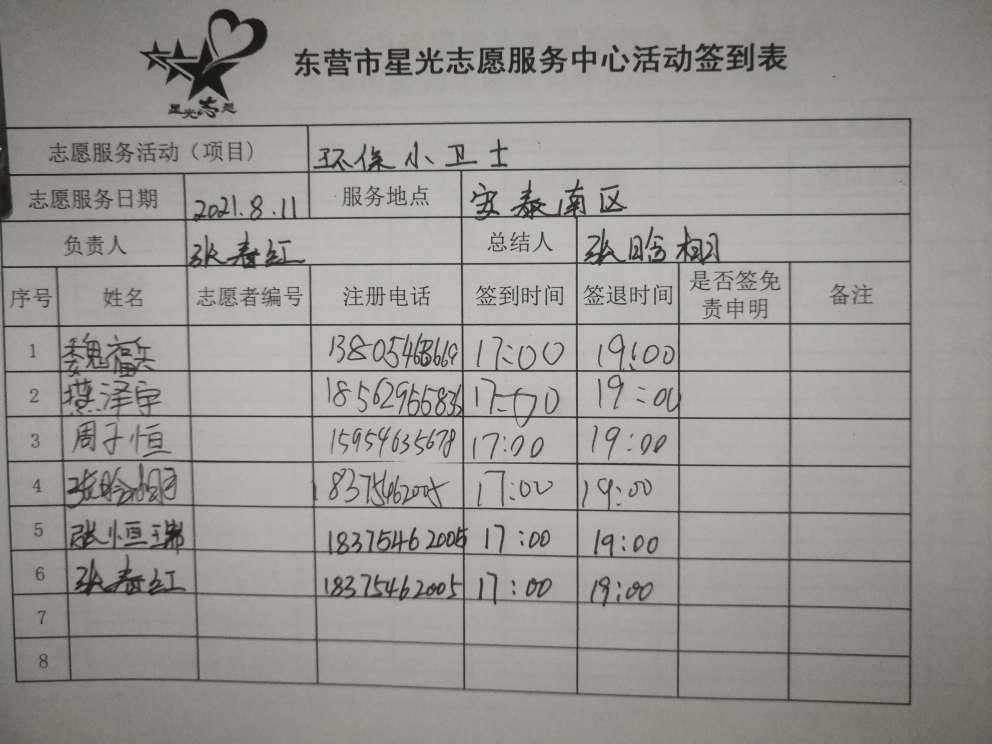 星光志愿
东营市星光志愿服务中心活动签到表
志愿服务活动（项目） 环保小卫士
志愿服务日期 2021.8.11 服务地点 安泰南区
负责人 张春红 总结人 张晗相习
序号 姓名 志愿者编号 注册电话 签到时间 签退时间 是否签免责申明 备注
1 魏福兵 17:00 19:00
2 泽宇 17:00 19:00
3 周子恒 15954635678 17:00 19:00
4 张晗 18375462005 17:00 19:00
5 张恒瑞 18375462005 17:00 19:00
6 张春红 18375462005 17:00 19:00
7
8